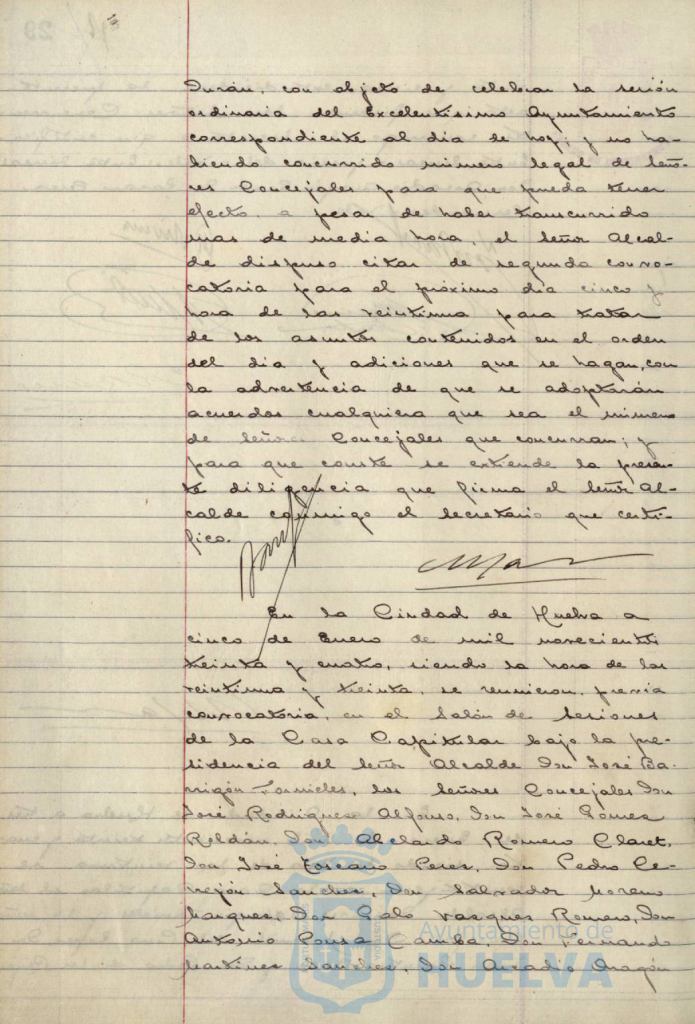 Durán, con objeto de celebrar la sesión
ordinaria del Excelentísimo Ayuntamiento
correspondiente al día de hoy; y no ha-
biendo concurrido número legal de Seño-
res Concejales para que pueda tener
efecto, a pesar de haber transcurrido
mas de media hora, el Señor Alcal-
de dispuso citar de segunda convo-
catoria para el próximo día cinco y
hora de las veintiuna para tratar
de los asuntos contenidos en el orden
del día y adiciones que se hagan, con
la advertencia de que se adoptarán
acuerdos cualquiera que sea el número
de Señores Concejales que concurran; y
para que conste se extiende la presen-
te diligencia que firma el Señor Al-
calde conmigo el Secretario que certi-
fico.
En la Ciudad de Huelva a
cinco de Enero de mil novecientos
treinta y cuatro, siendo la hora de las
veintiuna y treinta, se reunieron, previa
convocatoria, en el Salón de Sesiones
de la Casa Capitular bajo la pre-
sidencia del Señor Alcalde Don José Ba-
rrigón Fornieles, los Señores Concejales Don
José Rodríguez Alfonso, Don José Gómez
Roldán, Don Abelardo Romero Claret,
Don José Toscano Peres, Don Pedro Ce-
rrejón Sanchez, Don Salvador Moreno
Marquez, Don Galo Vazquez Romero, Don
Antonio Pousa Camba, Don Fernando
Martinez Sanchez, Don Arcadio Aragón
Ayuntamiento de
HUELVA